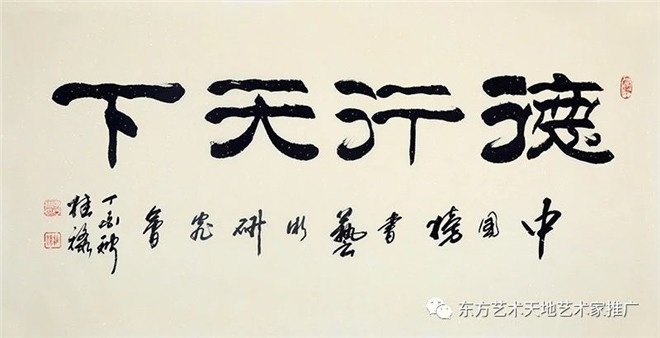 德行天下
中国榜書藝术研究會
丁酉秋
东方艺术天地艺术家推广